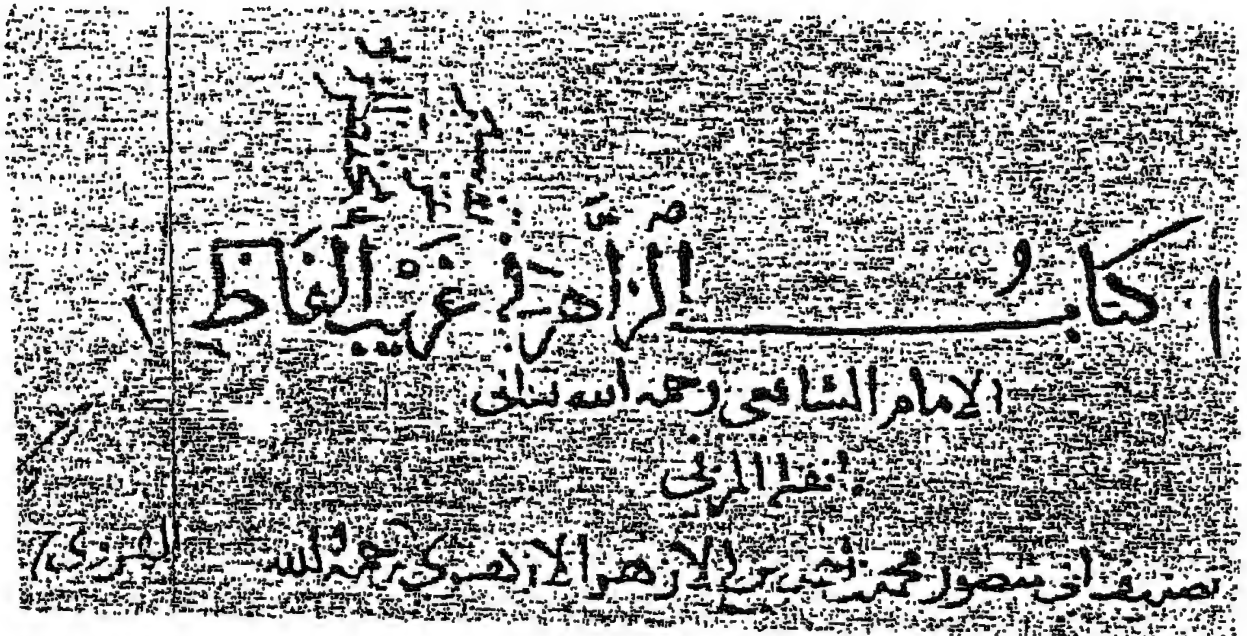 كتاب الزاهر في غريب ألفاظ
الإمام الشافعي رحمه الله تعالى
بنقل المزني
تصنيف أبي منصور محمد بن أحمد بن الأزهر الأزهري رحمه الله الهروي